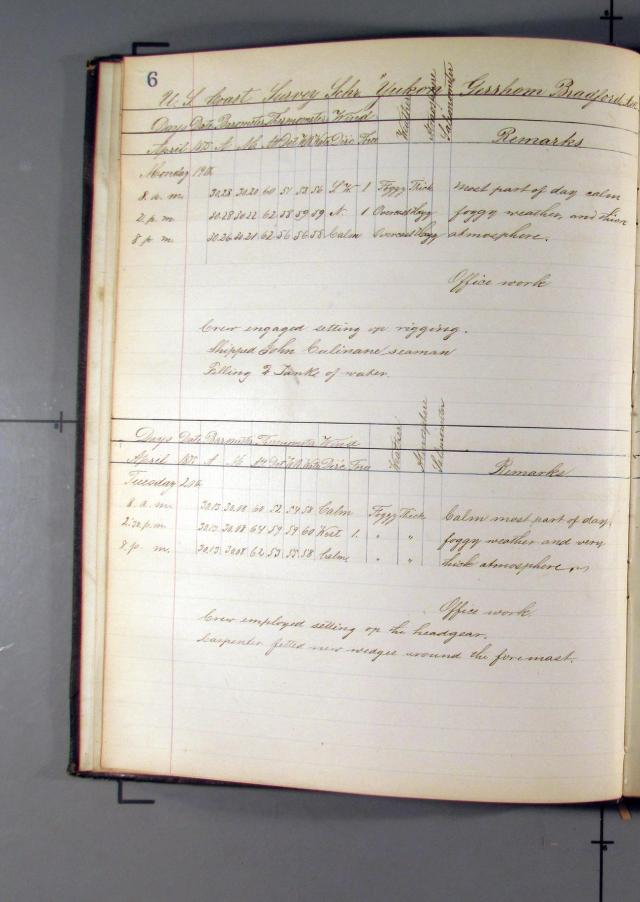 6
U. S. Coast Survey Schr "Yukon" Gershom Bradford
Days Date Barometer Thermometer Wind Weather Atmosphere Salinometer
April Remarks
Monday 19th
8 a. m. 30.28 30.20 60 57 58 56 S W 1 Foggy Thick most part of day calm
2 p. m. 30.28 30.22 62 58 59 59 N. 1 Overcast Foggy foggy weather, and thick
8 p. m. 30.26 30.21 62 56 56 58 Calm Overcast Foggy atmosphere.
Office work
Crew engaged setting up rigging.
Shipped John Culinane seaman
Filling 2 Tanks of water.
Days Date Barometer Thermometer Wind Weather Atmosphere Salinometer
April Remarks
Tuesday 20th
8. a. m. 30.13 30.10 60 52 54 58 Calm Foggy Thick Calm most part of day,
2:30 p. m. 30.13 30.08 64 59 59 60 West 1. " " foggy weather and very
8. p. m. 30.13 30.08 62 53 55 58 Calm. " " thick atmosphere.
Office work.
Crew employed setting up the headgear.
Carpenter fitted new wedges around the foremast.